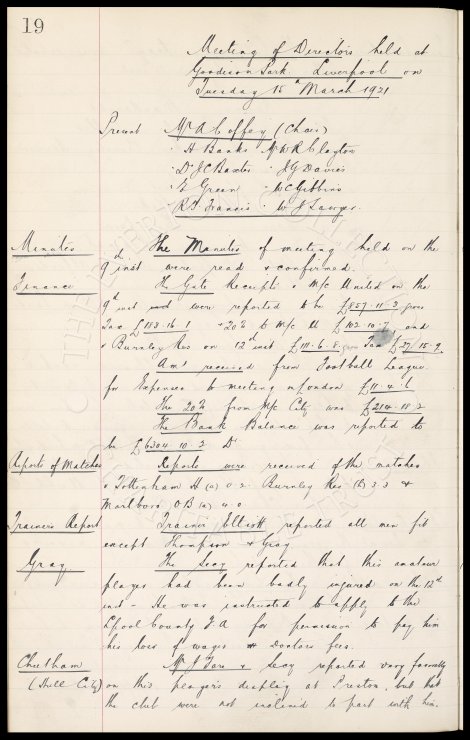 19
Meeting of Directors held at
Goodison Park Liverpool on
Tuesday 15th March 1921
Present Mr A Coffey (Chair)
" H Banks Mr W R Clayton
" Dr J C Baxter " J G Davies
" E Green " W C Gibbins
" R T Francis " W J Sawyer.
Minutes The Minutes of meeting held on the
9th inst were read & confirmed.
Finance The Gate Receipts v M/c United on the
9th inst were reported to be £857.11.3 gross
Tax £183.16.1 + 20% to M/c U £102.10.7 and
v Burnley Res on 12th inst £111.6.8 gross Tax £27.15.9.
Amt received from Football League
for Expenses to meeting in London £11.4.6
The 20% from M/c City was £214.18.2
The Bank Balance was reported to
be £6304.10.2 Dr
Reports of Matches Reports were received of the matches
v Tottenham H (a) 0.2. Burnley Res (h) 3.3 &
Marlboro O B (a) 4.0
Trainers Report Trainer Elliott reported all men fit
except Thompson & Gray
Gray The Secy reported that this amateur
player had been badly injured on the 12th
inst - He was instructed to apply to the
Lpool County F.A for permission to pay him
his loss of wages & Doctors fees.
Cheetham Mr J Fare & Secy reported very favorably
(Hull City) on this player's display at Preston, but that
the club were not inclined to part with him.